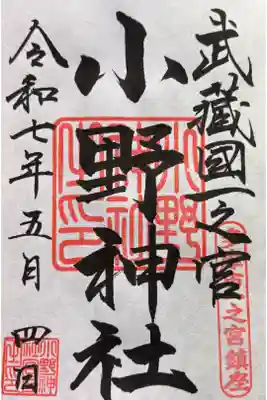 武藏國一之宮
小野神社
令和七年五月 四日
小野神社之印
之宮鎮座